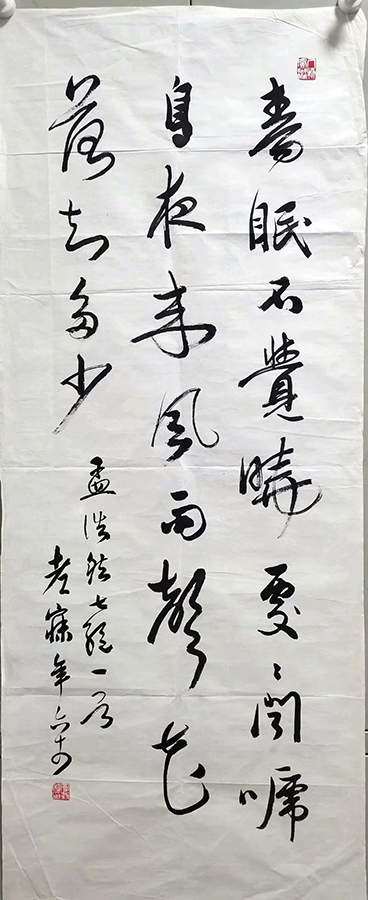 春眠不覺曉處〻聞啼
鳥夜来風雨聲花
落知多少
孟浩然七絶一首
老年六十